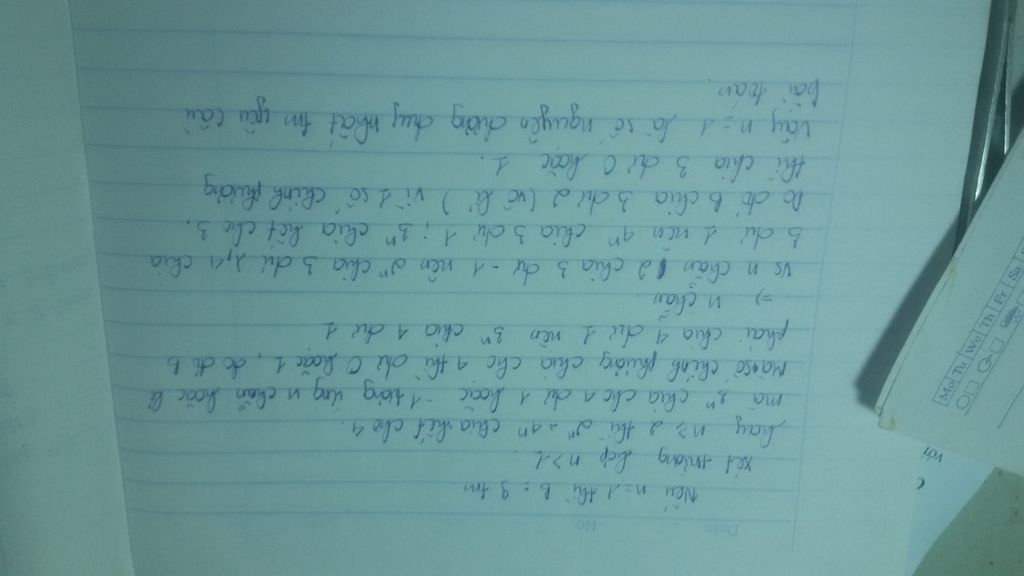 Date No
Nếu n = 1 thì B = 9 tm
xét trường hợp n > 1
hay n ≥ 2 thì 2ⁿ = 4ⁿ chia hết cho 4.
mà 3ⁿ chia cho 4 dư 1 hoặc -1 tương ứng n chẵn hoặc lẻ
Mà số chính phương chia cho 4 thì dư 0 hoặc 1, do đó B
phải chia 4 dư 1 nên 3ⁿ chia 4 dư 1
=> n chẵn.
vs n chẵn 2 chia 3 dư -1 nên 2ⁿ chia 3 dư 1, 4 chia
3 dư 1 nên 4ⁿ chia 3 dư 1; 3ⁿ chia hết cho 3.
Do đó B chia 3 dư 2 (vô lí) vì 1 số chính phương
thì chia 3 dư 0 hoặc 1.
Vậy n = 1 là số nguyên dương duy nhất tm yêu cầu
bài toán.
Mo Tu We Th Fr Sa